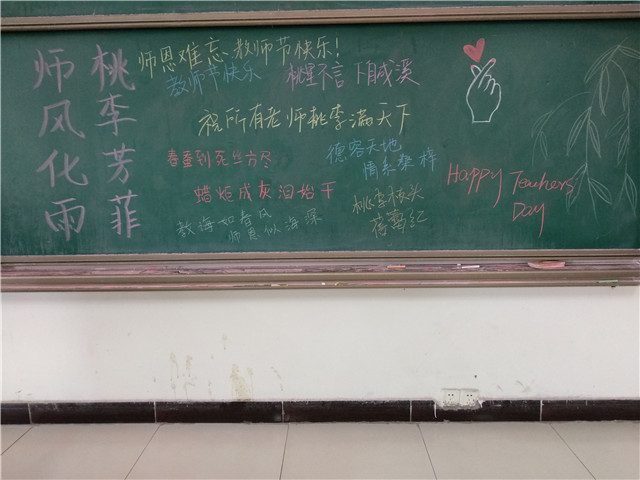 桃李芳菲
师风化雨
师恩难忘、教师节快乐!
教师节快乐
桃李不言 下自成溪
祝所有老师桃李满天下
春蚕到死丝方尽
蜡炬成灰泪始干
德容天地
情系桑梓
教诲如春风
师恩似海深
桃李枝头
蓓蕾红
Happy Teachers
Day